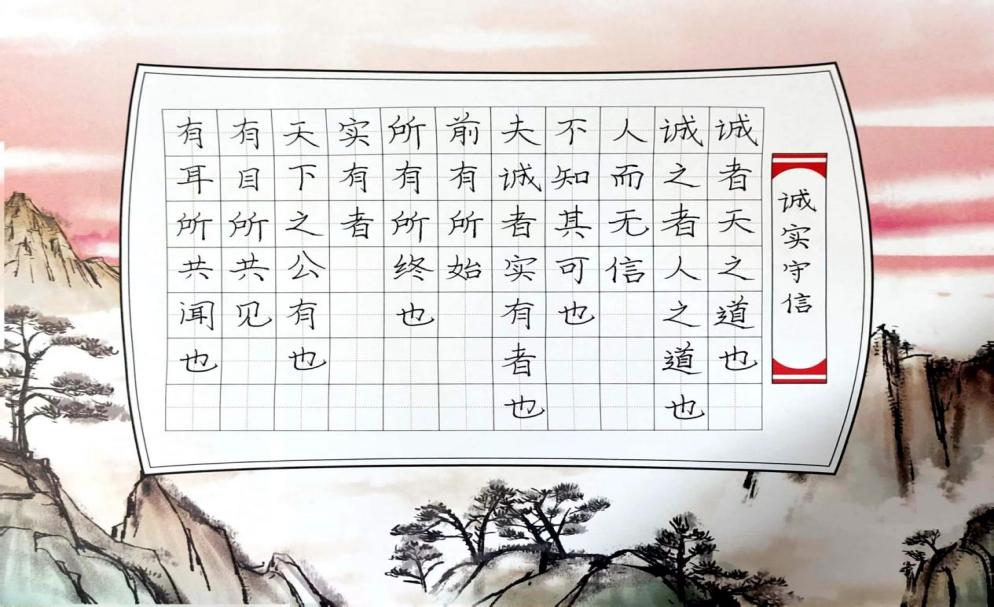 诚实守信
诚者天之道也
诚之者人之道也
人而无信
不知其可也
夫诚者实有者也
前有所始
所有所终也
实有者
天下之公有也
有目所共见
有耳所共闻也